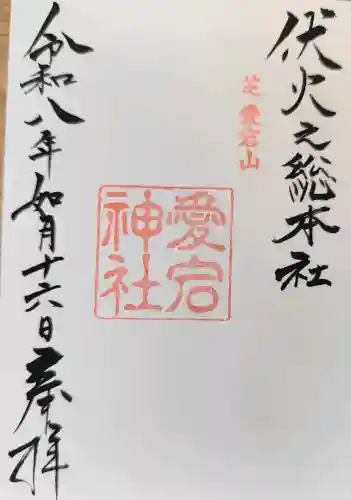 伏火之総本社
芝 愛宕山
愛宕
神社
令和八年如月十六日 奉拝